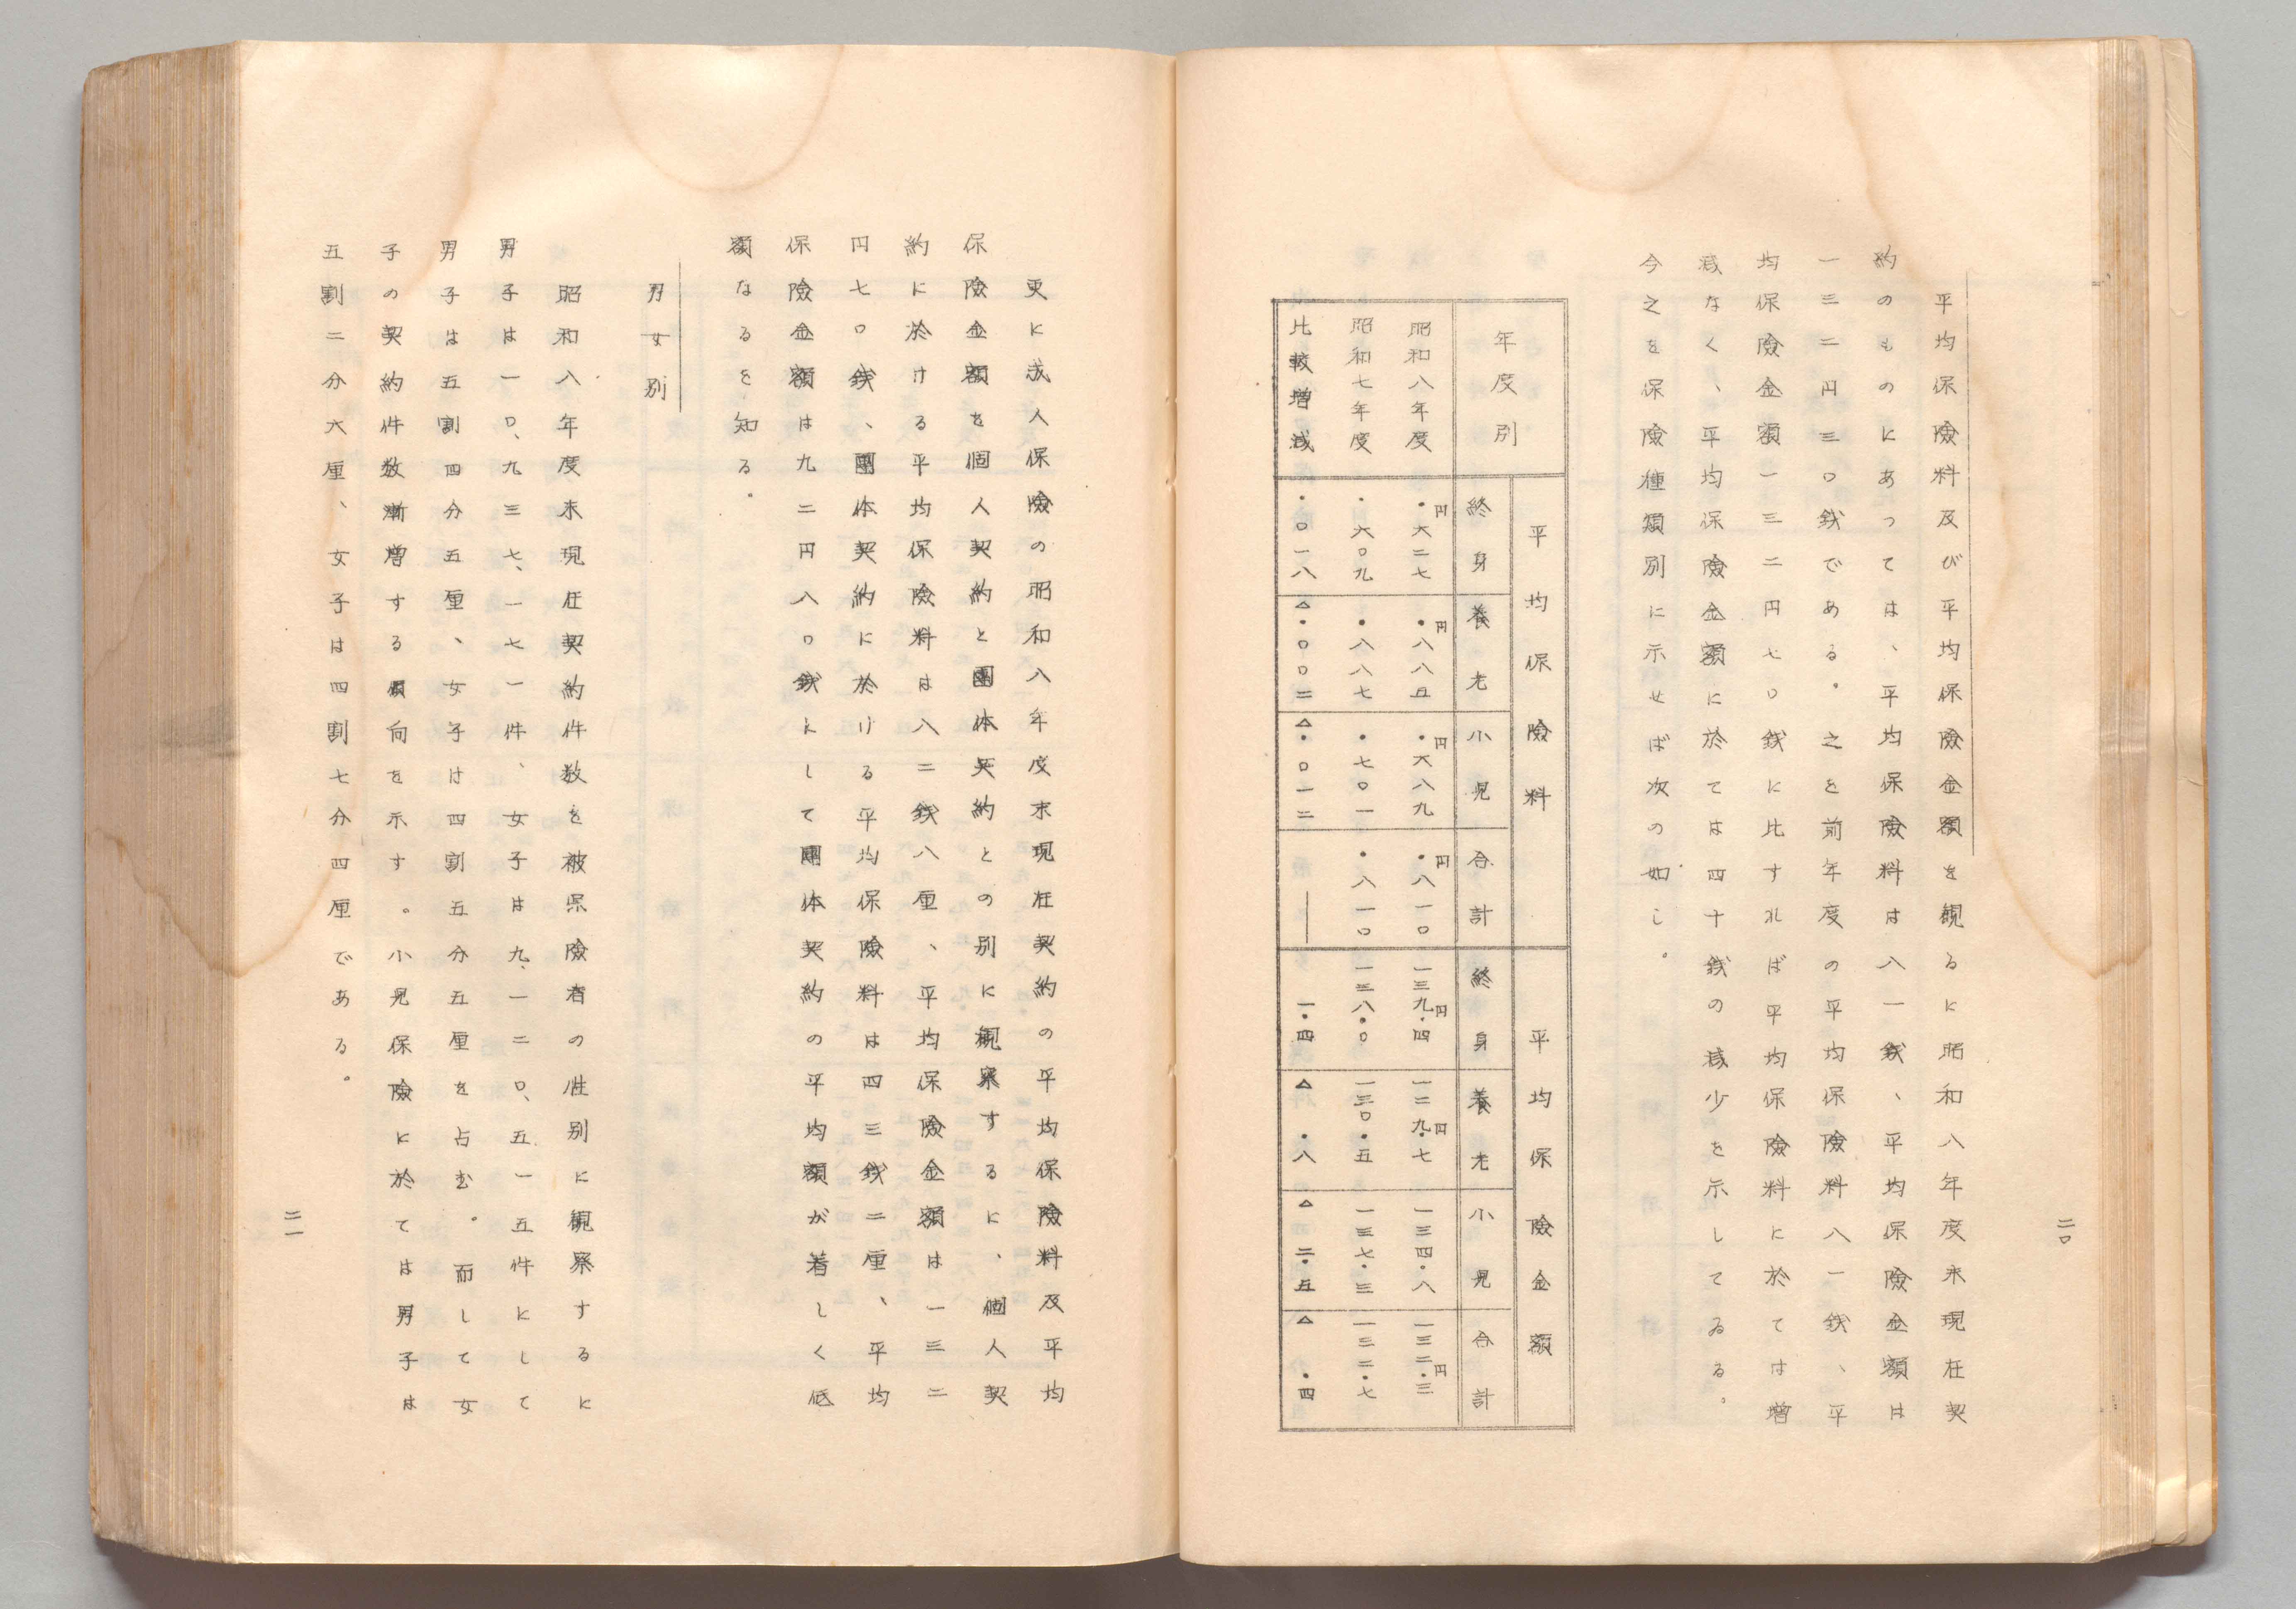 平均保険料及び平均保険金額を観るに昭和八年度末現在契
約のものにあつては、平均保険料は八一銭、平均保険金額は
一三二円三〇銭である。之を前年度の平均保険料八一銭、平
均保険金額一三二円七〇銭に比すれば平均保険料に於ては増
減なく、平均保険金額に於ては四十銭の減少を示してゐる。
今之を保険種類別に示せば次の如し。
年度別 平均保険料 平均保険金額
終身 養老 小児 合計 終身 養老 小児 合計
昭和八年度 円・六二七 円・八八五 円・六八九 円・八一〇 一三九・四円 一二九・七円 一三四・八 一三二・三円
昭和七年度 ・六〇九 ・八八七 ・七〇一 ・八一〇 一三八・〇 一三〇・五 一三七・三 一三二・七
比較増減 ・〇一八 △・〇〇二 △・〇一二 ― 一・四 △・八 △二・五 △・四
二〇
更に成人保険の昭和八年度末現在契約の平均保険料及平均
保険金額を個人契約と團体契約との別に観察するに、個人契
約に於ける平均保険料は八二銭八厘、平均保険金額は一三二
円七〇銭、團体契約に於ける平均保険料は四三銭二厘、平均
保険金額は九二円八〇銭にして團体契約の平均額が着しく低
額なるを知る。
男女別
昭和八年度末現在契約件数を被保険者の性別に観察するに
男子は一〇、九三七、一七一件、女子は九、一二〇、五一五件にして
男子は五割四分五厘、女子は四割五分五厘を占む。而して女
子の契約件数漸増する傾向を示す。小児保険に於ては男子は
五割二分六厘、女子は四割七分四厘である。
二一